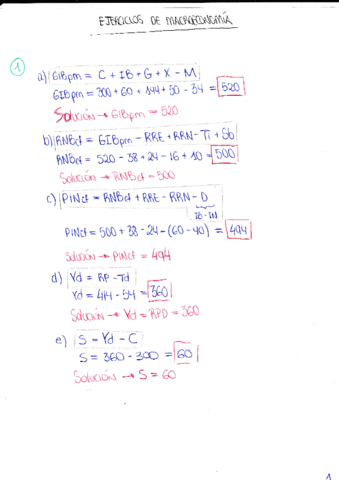 EJERCICIOS DE MACROECONOMÍA
1
a) GIBpm = C + IB + G + X - M
GIBpm = 300 + 60 + 144 + 50 - 34 = 520
Solución → GIBpm = 520
b) RNBcf = GIBpm - RRE + RRN - Ti + Sb
RNBcf = 520 - 38 + 24 - 16 + 10 = 500
Solución → RNBcf = 500
c) PINcf = RNBcf + RRE - RRN - D
IB - IN
PINcf = 500 + 38 - 24 - (60 - 40) = 494
Solución → PINcf = 494
d) Yd = RP - Td
Yd = 414 - 54 = 360
Solución → Yd = RPD = 360
e) S = Yd - C
S = 360 - 300 = 60
Solución → S = 60
1